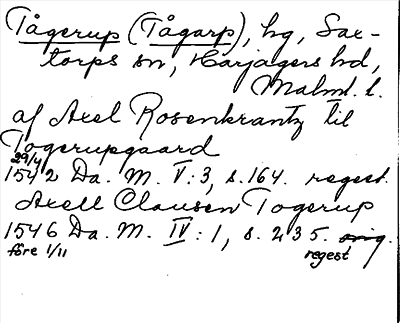 Tågerup (Tågarp), hg, Sax-
torps sn, Harjagers hd,
Malm. l.
af Axel Rosenkrantz til
Togerupgaard
29/4
1542 Da. M. V:3, s. 164. regest.
Axell Clausen Togerup
1546 Da. M. IV:1, s. 235. orig.
före 1/11 regest